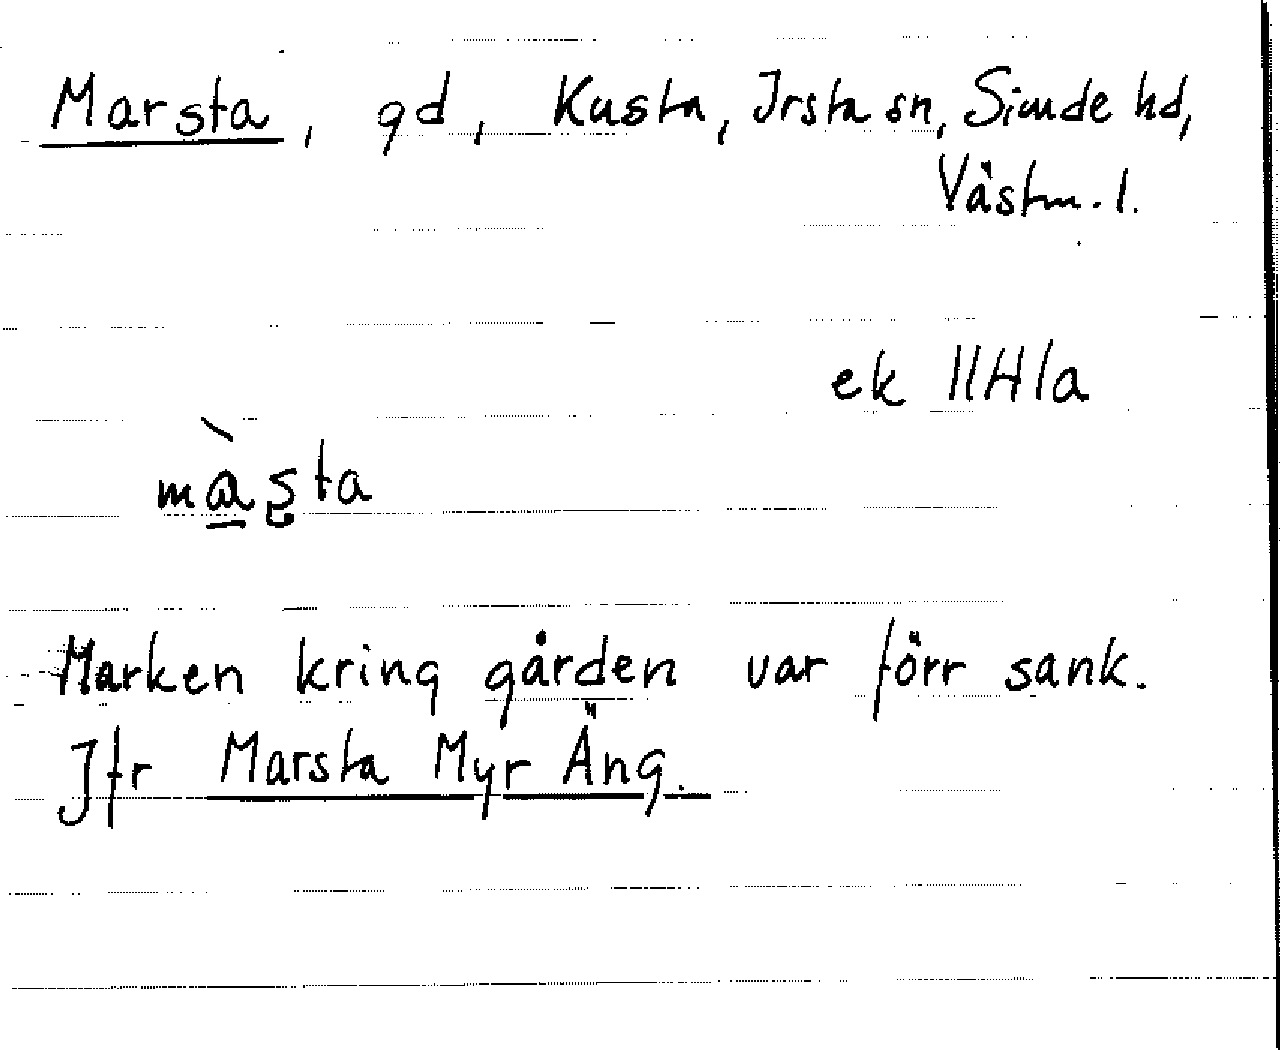 Marsta, gd, Kusta, Irsta sn, Siende hd,
Västm. l.
ek IIH1a
mà̱s̨ta
Marken kring gården var förr sank.
Jfr Marsta Myr Äng.